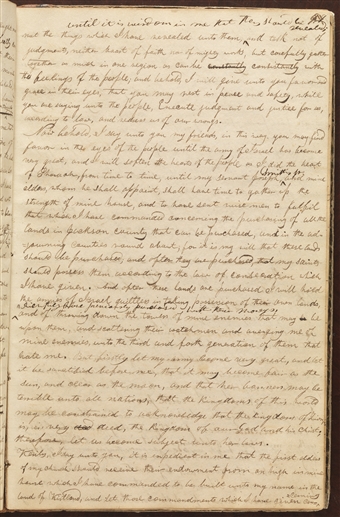 until it is wisdom in me that they should be revealed
not the things which I have revealed unto them, talk not of
judgment, neither boast of faith nor of mighty works, but carefully gather
together as much in one region as can be consistently with
the feelings of the people, and behold, I will give unto you favor and
grace in their eyes, that you may rest in peace and safety, while
you are saying unto the people, Execute judgment and justice for us,
according to law, and redress us of our wrongs.
Now behold, I say unto you my friends, in this way you may find
favor in the eyes of the people until the army of Israel has become
very great, and I will soften the hearts of the people as I did the heart
of Pharaoh, from time to time, until my servant Joseph Smith jr. and mine
elders, whom he shall appoint, shall have time to gather up the
strength of mine house, and to have sent wise men to fulfil
that which I have commanded concerning the purchasing of all the
lands in Jackson county that can be purchased, and in the ad-
joining counties round about, for it is my will that these lands
should be purchased, and after they are purchased, that my saints
should possess them according to the laws of consecration which
I have given. And after these lands are purchased I will hold
the armies of Israel guiltless in taking possession of their own lands,
which they have previously purchased with their monies,
and of throwing down the towers of mine enemies that may be
upon them, and scattering their watchmen and avenging me of
mine enemies, unto the third and forth generation of them that
hate me. But firstly let my army become very great, and let
it be sanctified before me, that it may become fair as the
sun, and clear as the moon, and that her banners may be
terrible unto all nations; that the kingdoms of this world
may be constrained to acknowledge that the kingdom of Zion
is in very deed, the kingdom of our God and his Christ,
therefore, let us become subject unto her laws.
Verily, I say unto you, it is expedient in me that the first elders
of my church should receive their endowment from on high in mine
house which I have commanded to be built unto my name in the
land of Kirtland, and let those commandments which I have given